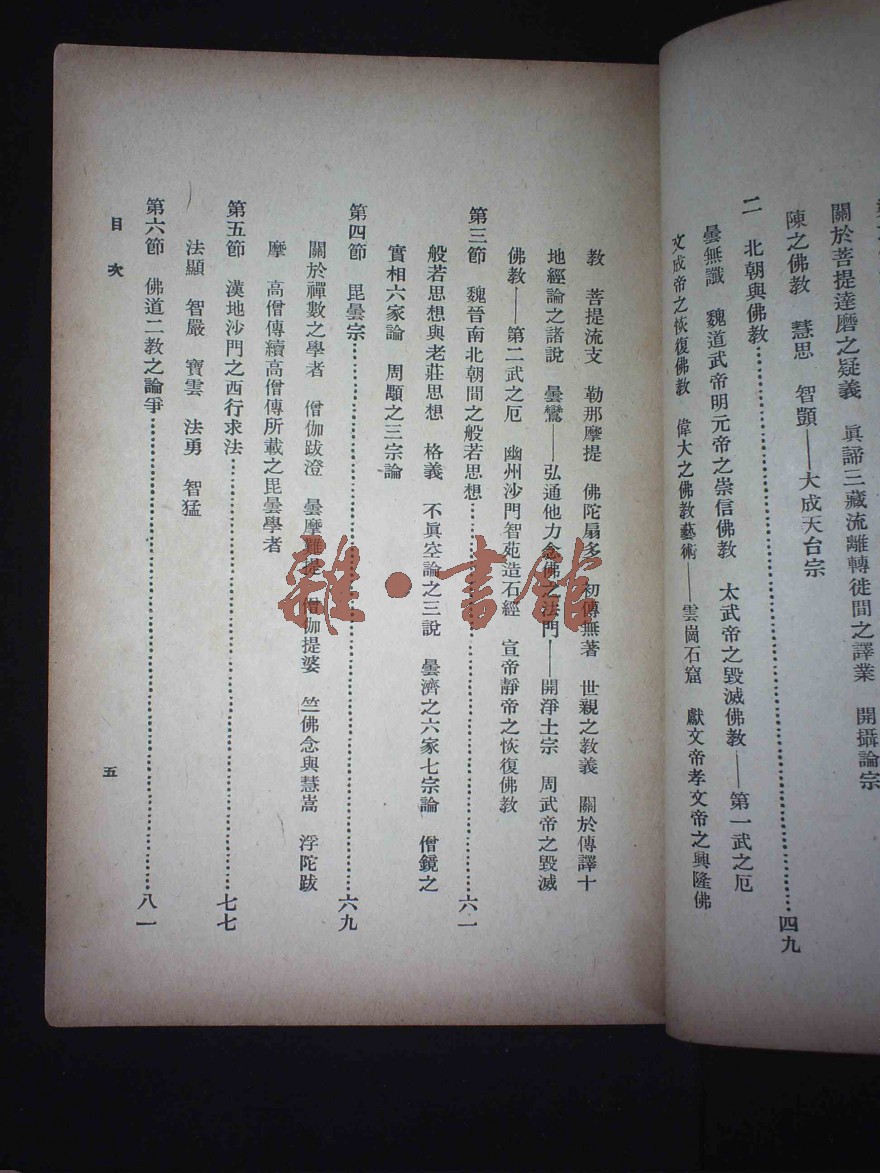 關於菩提達磨之疑義 眞諦三藏流離轉徙間之譯業 開攝論宗
陳之佛教 慧思 智顗——大成天台宗
二 北朝與佛教…………四九
曇無讖 魏道武帝明元帝之崇信佛教 太武帝之毀滅佛教——第一武之厄
文成帝之恢復佛教 偉大之佛教藝術——雲崗石窟 獻文帝孝文帝之興隆佛
教 菩提流支 勒那摩提 佛陀扇多 初傳無著 世親之教義 關於傳譯十
地經論之諸說 曇鸞——弘通他力念佛之法門——開淨土宗 周武帝之毀滅
佛教——第二武之厄 幽州沙門智苑造石經 宣帝靜帝之恢復佛教
第三節 魏晉南北朝間之般若思想…………六一
般若思想與老莊思想 格義 不眞空論之三說 曇濟之六家七宗論 僧鏡之
實相六家論 周顒之三宗論
第四節 毘曇宗…………六九
關於禪數之學者 僧伽跋澄 曇摩難提 僧伽提婆 竺佛念與慧嵩 浮陀跋
摩 高僧傳續高僧傳所載之毘曇學者
第五節 漢地沙門之西行求法…………七七
法顯 智嚴 寶雲 法勇 智猛
第六節 佛道二教之論爭…………八一
目次
五
雜·書館